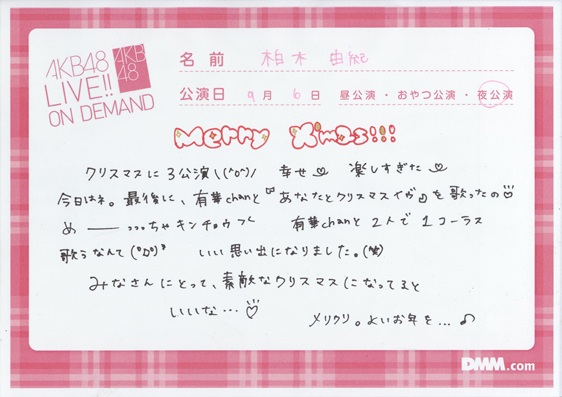 AKB48
LIVE!!
ON DEMAND
AKB
48
名前 柏木 由紀
公演日 9月 6日 昼公演・おやつ公演・夜公演
Merry X'mas!!!
クリスマスに3公演\(^o^)/ 幸せ♡ 楽しすぎた♡
今日はネ。最後に、有華chanと“あなたとクリスマスイヴ♪”を歌ったの♡
め――っっっちゃキンチョウ 有華chanと2人で1コーラス
歌うなんて(°Д°)" いい思い出になりました。(笑)
みなさんにとって、素敵なクリスマスになってると
いいな…♡
メリクリ。よいお年を…♪
DMM.com